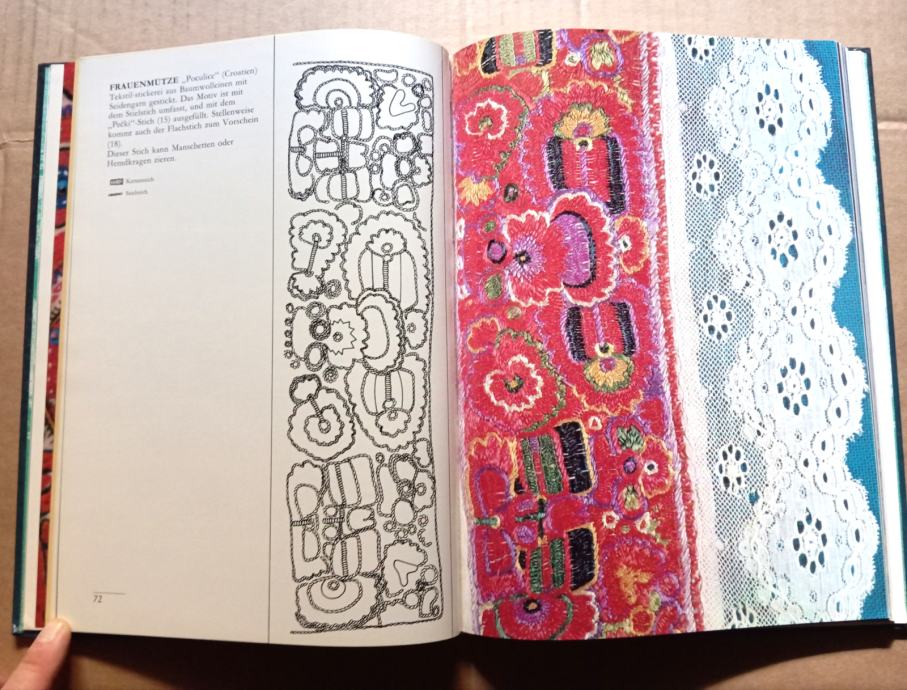 FRAUENMÜTZE „Poculice" (Croatien)
Tekstil-stickerei aus Baumwolleinen mit
Seidengarn gestickt. Das Motiv ist mit
dem Stielstich umfasst, und mit dem
„Počki"-Stich (15) ausgefüllt. Stellenweise
kommt auch der Flachstich zum Vorschein
(18).
Dieser Stich kann Manschetten oder
Hemdkragen zieren.
Kettenstich
Stielstich
72